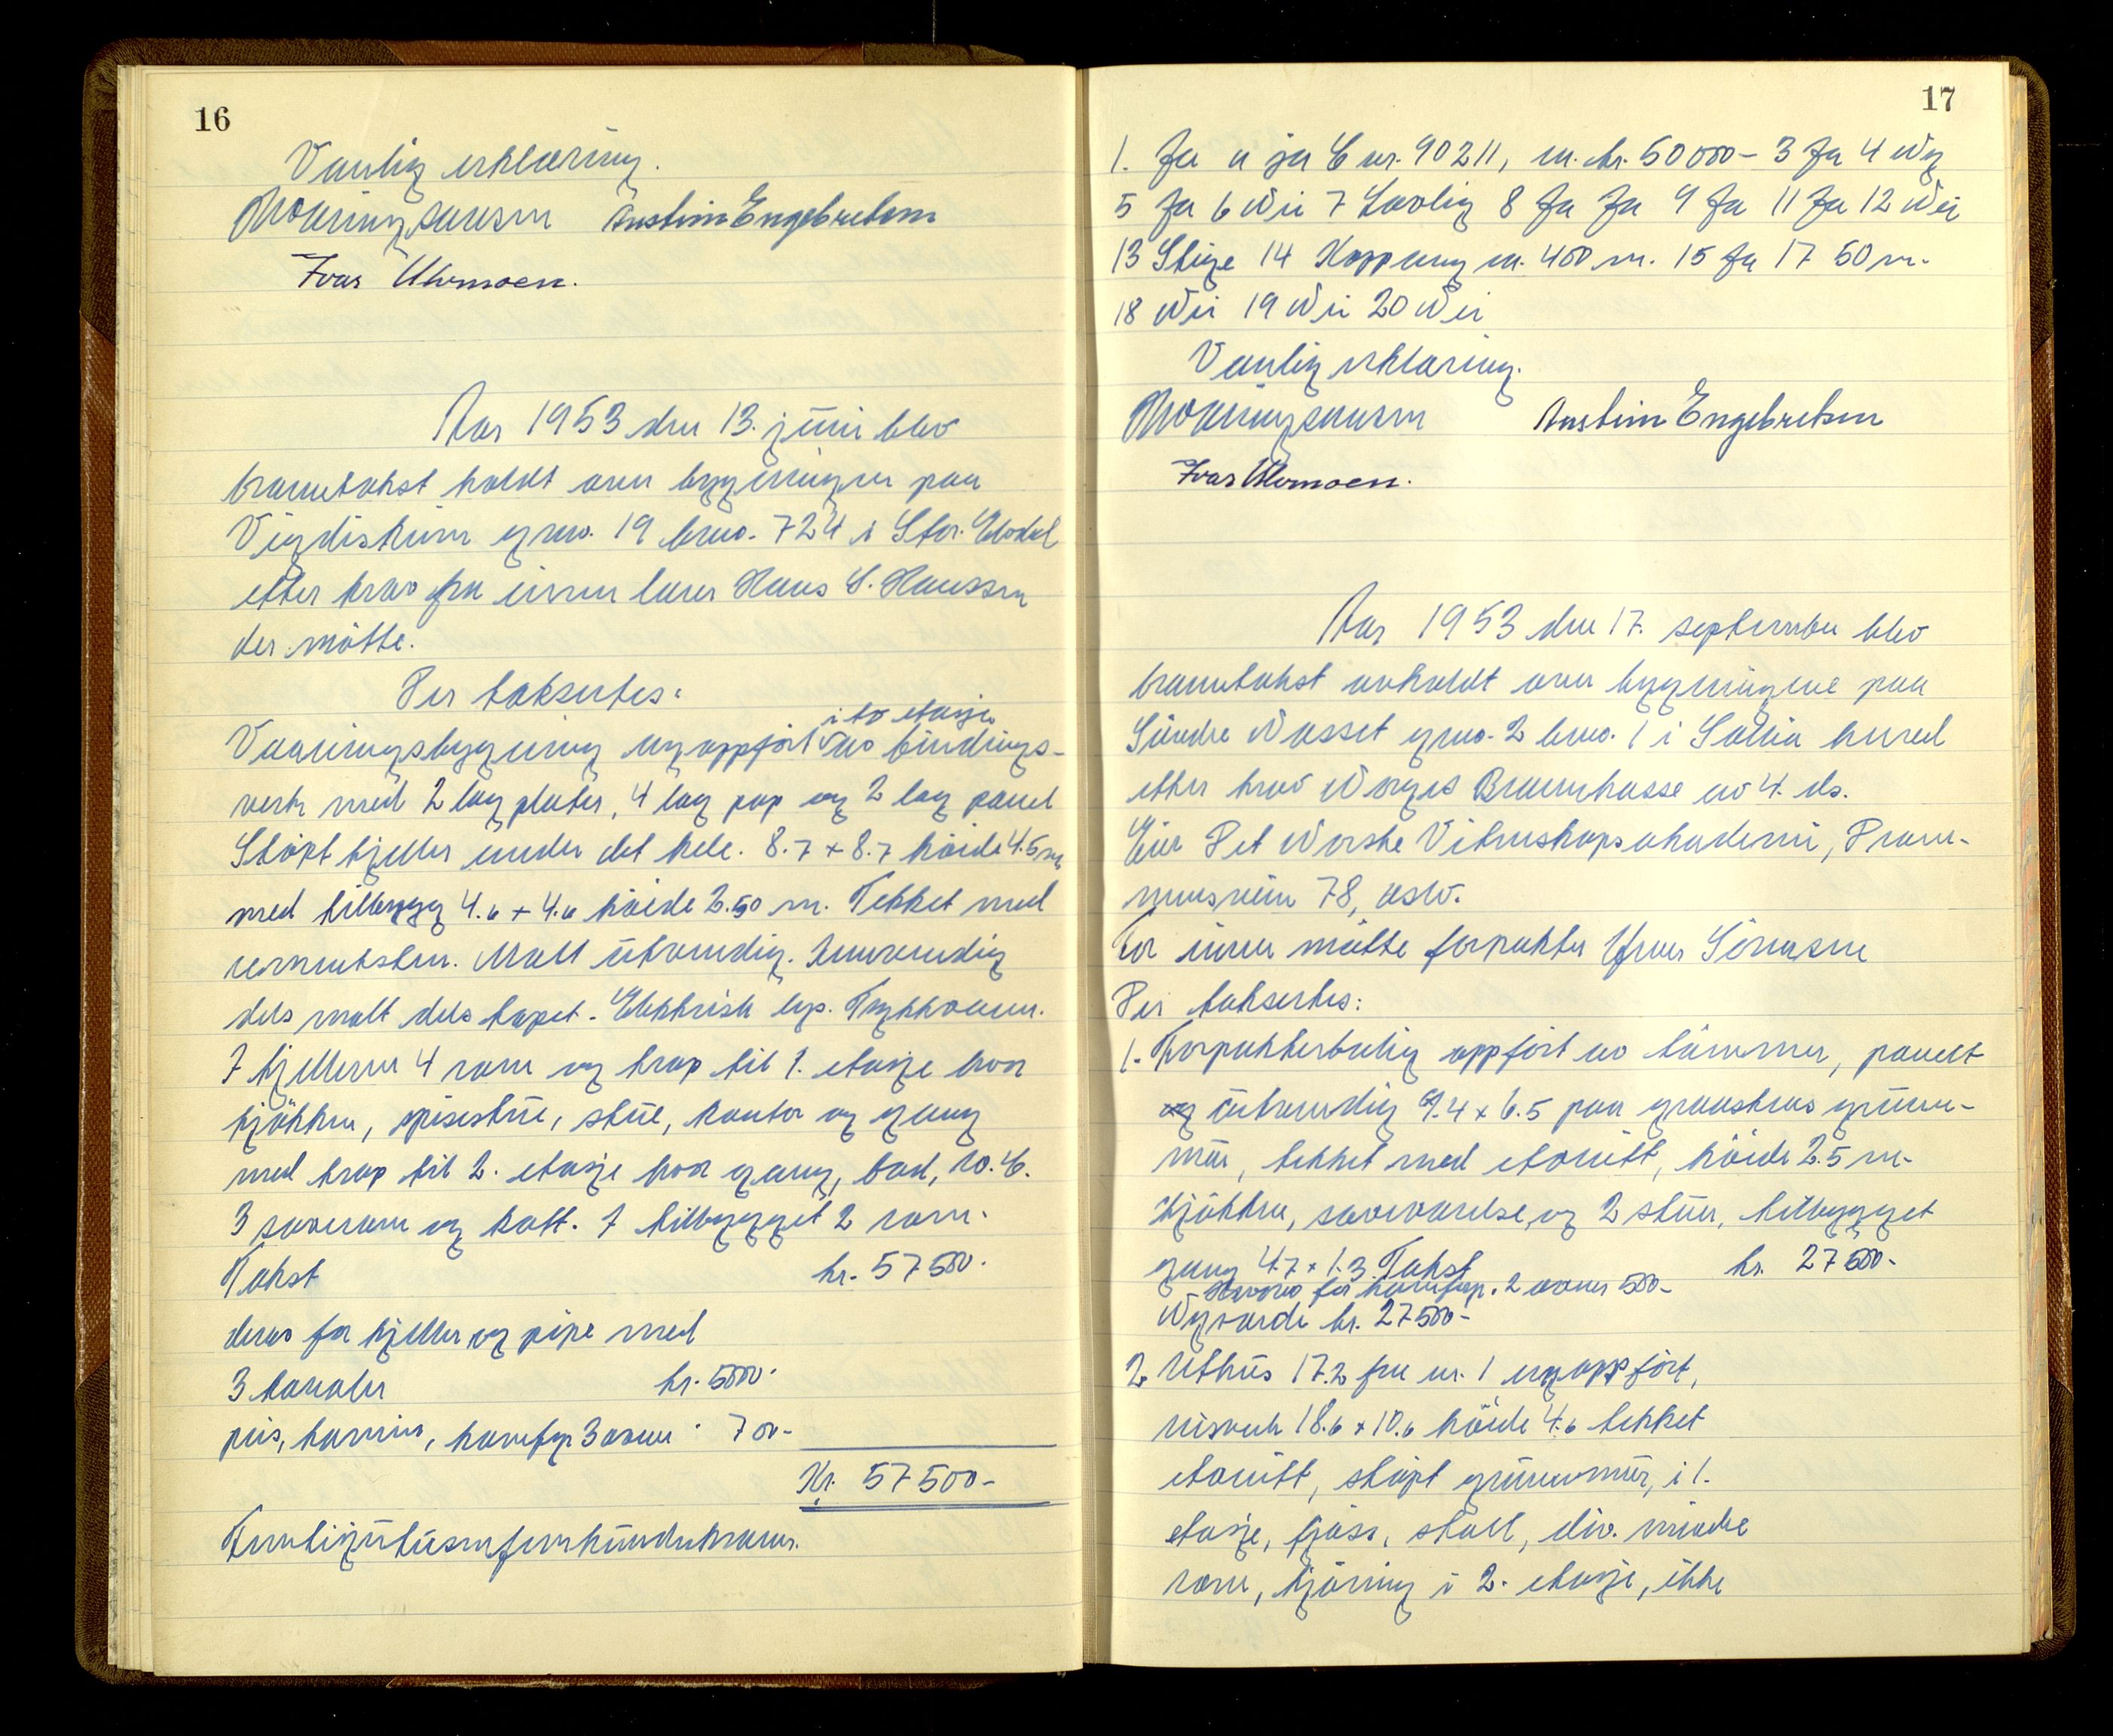 16
Vanlig erklæring.
Austein Engebretsen
Ivar Ulvmoen.
Aar 1953 den 13. juni blev
branntakst holdt over bygningen paa
Vigdisheim gno. 19 bno. 724 i Stor-Elvdal
etter krav fra eieren lærer Hans S. Hanssen
der møtte.
Der takseertes:
i to etasje
Vaaningsbygning nyoppført av bindings-
verk med 2 lag plater, 4 lag pap og 2 lag panel
Støpt kjeller under det hele. 8.7 x 8.7 høide 4.5 m
med tilbygg 4.6 x 4.6 høide 2.50 m. Tekket med
sementsten. Malt utvendig. Innvendig
dels malt dels tapet. Elektrisk lys. Trykkvann.
I kjelleren 4 rom og trap til 1. etasje hvor
kjøkken, spisestue, stue, kontor og gang
med trap til 2. etasje hvor gang, bad, W.C.
3 soverom og kott. I tilbygget 2 rom.
Takst kr. 57500.
derav for kjeller og pipe med
3 kanaler kr. 5000.
peis, kamin, komfyr 3 ovner " 700-
Kr. 57500-
Femtisyvtusenfemhundrekroner.
17
1. Ja a ja C nr. 90211, m. kr. 50000- 3 Ja 4 Ny
5 Ja 6 Nei 7 Lovlig 8 Ja Ja 9 Ja 11 Ja 12 Nei
13 Stige 14 Koppang m. 400 m. 15 Ja 17 50 m.
18 Nei 19 Nei 20 Nei
Vanlig erklæring.
Austein Engebretsen
Ivar Ulvmoen.
Aar 1953 den 17. september blev
branntakst avholdt over bygningene paa
Søndre Nasset gno. 2 bno. 1 i Sollia herred
etter krav Norges Brannkasse av 4. ds.
Eier Det Norske Vitenskapsakademi, Dram-
mensveien 78, Oslo.
For eieren møtte forpakter Sørensen
Der takseertes:
1. Forpakterbolig oppført av tømmer, panelt
utvendig 9.4 x 6.5 paa graastens grunn-
mur, tekket med eternitt, høide 2.5 m.
Kjøkken, soveværelse, og 2 stuer, tilbygget
gang 4.7 x 1.3. Takst kr. 27500.-
Herav for komfyr. 2 ovner 500-
Nyverdi kr. 27500-
2. Uthus 17.2 fra nr. 1 nyoppført,
reisverk 18.6 x 10.6 høide 4.6 tekket
eternitt, støpt grunnmur, i 1.
etasje, fjøss, stall, div. mindre
rom, kjøring i 2. etasje, ikke